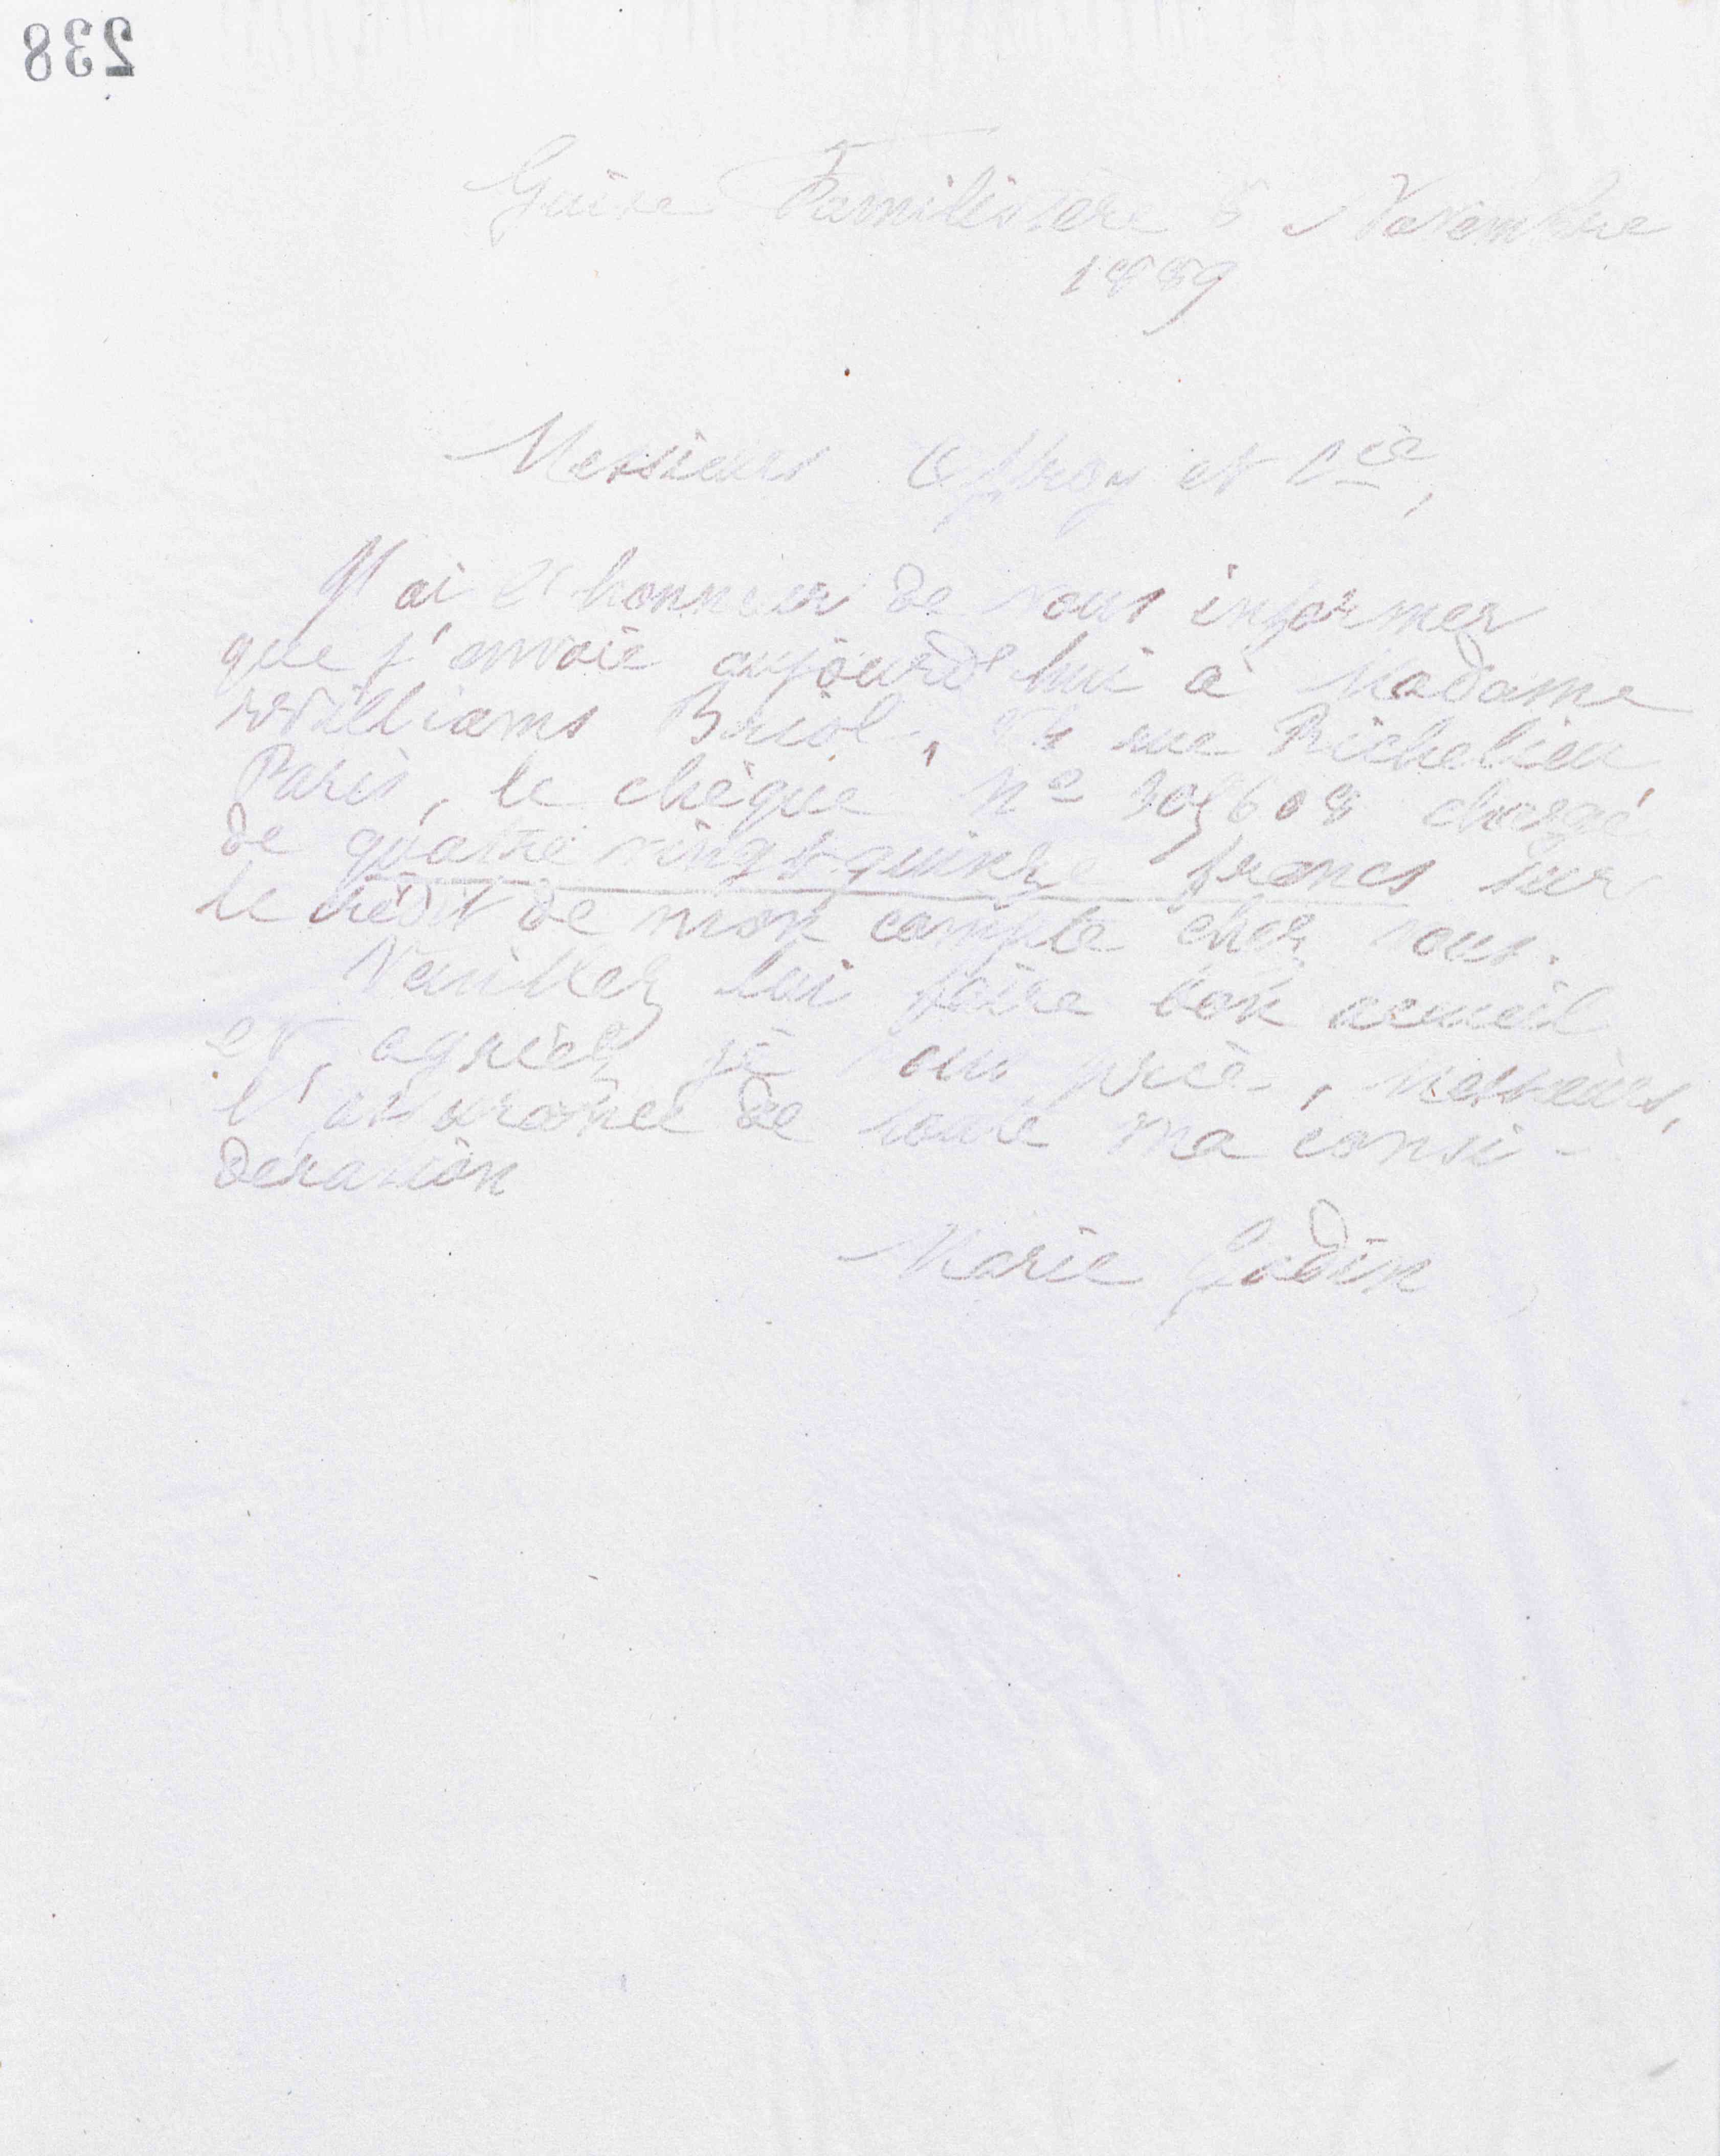 238
Guise Familistère 8 Novembre
1889
Messieurs Offroy et Cie,
J'ai l'honneur de vous informer
que j'envoie aujourd'hui à Madame
Williams rue Richelieu,
Paris, le chèque No chargé
de quatre vingt quinze francs sur
le crédit de mon compte chez vous.
Veuillez lui faire bon accueil
et, agréez, je vous prie, Messieurs,
l'assurance de toute ma consi-
dération
Marie Godin